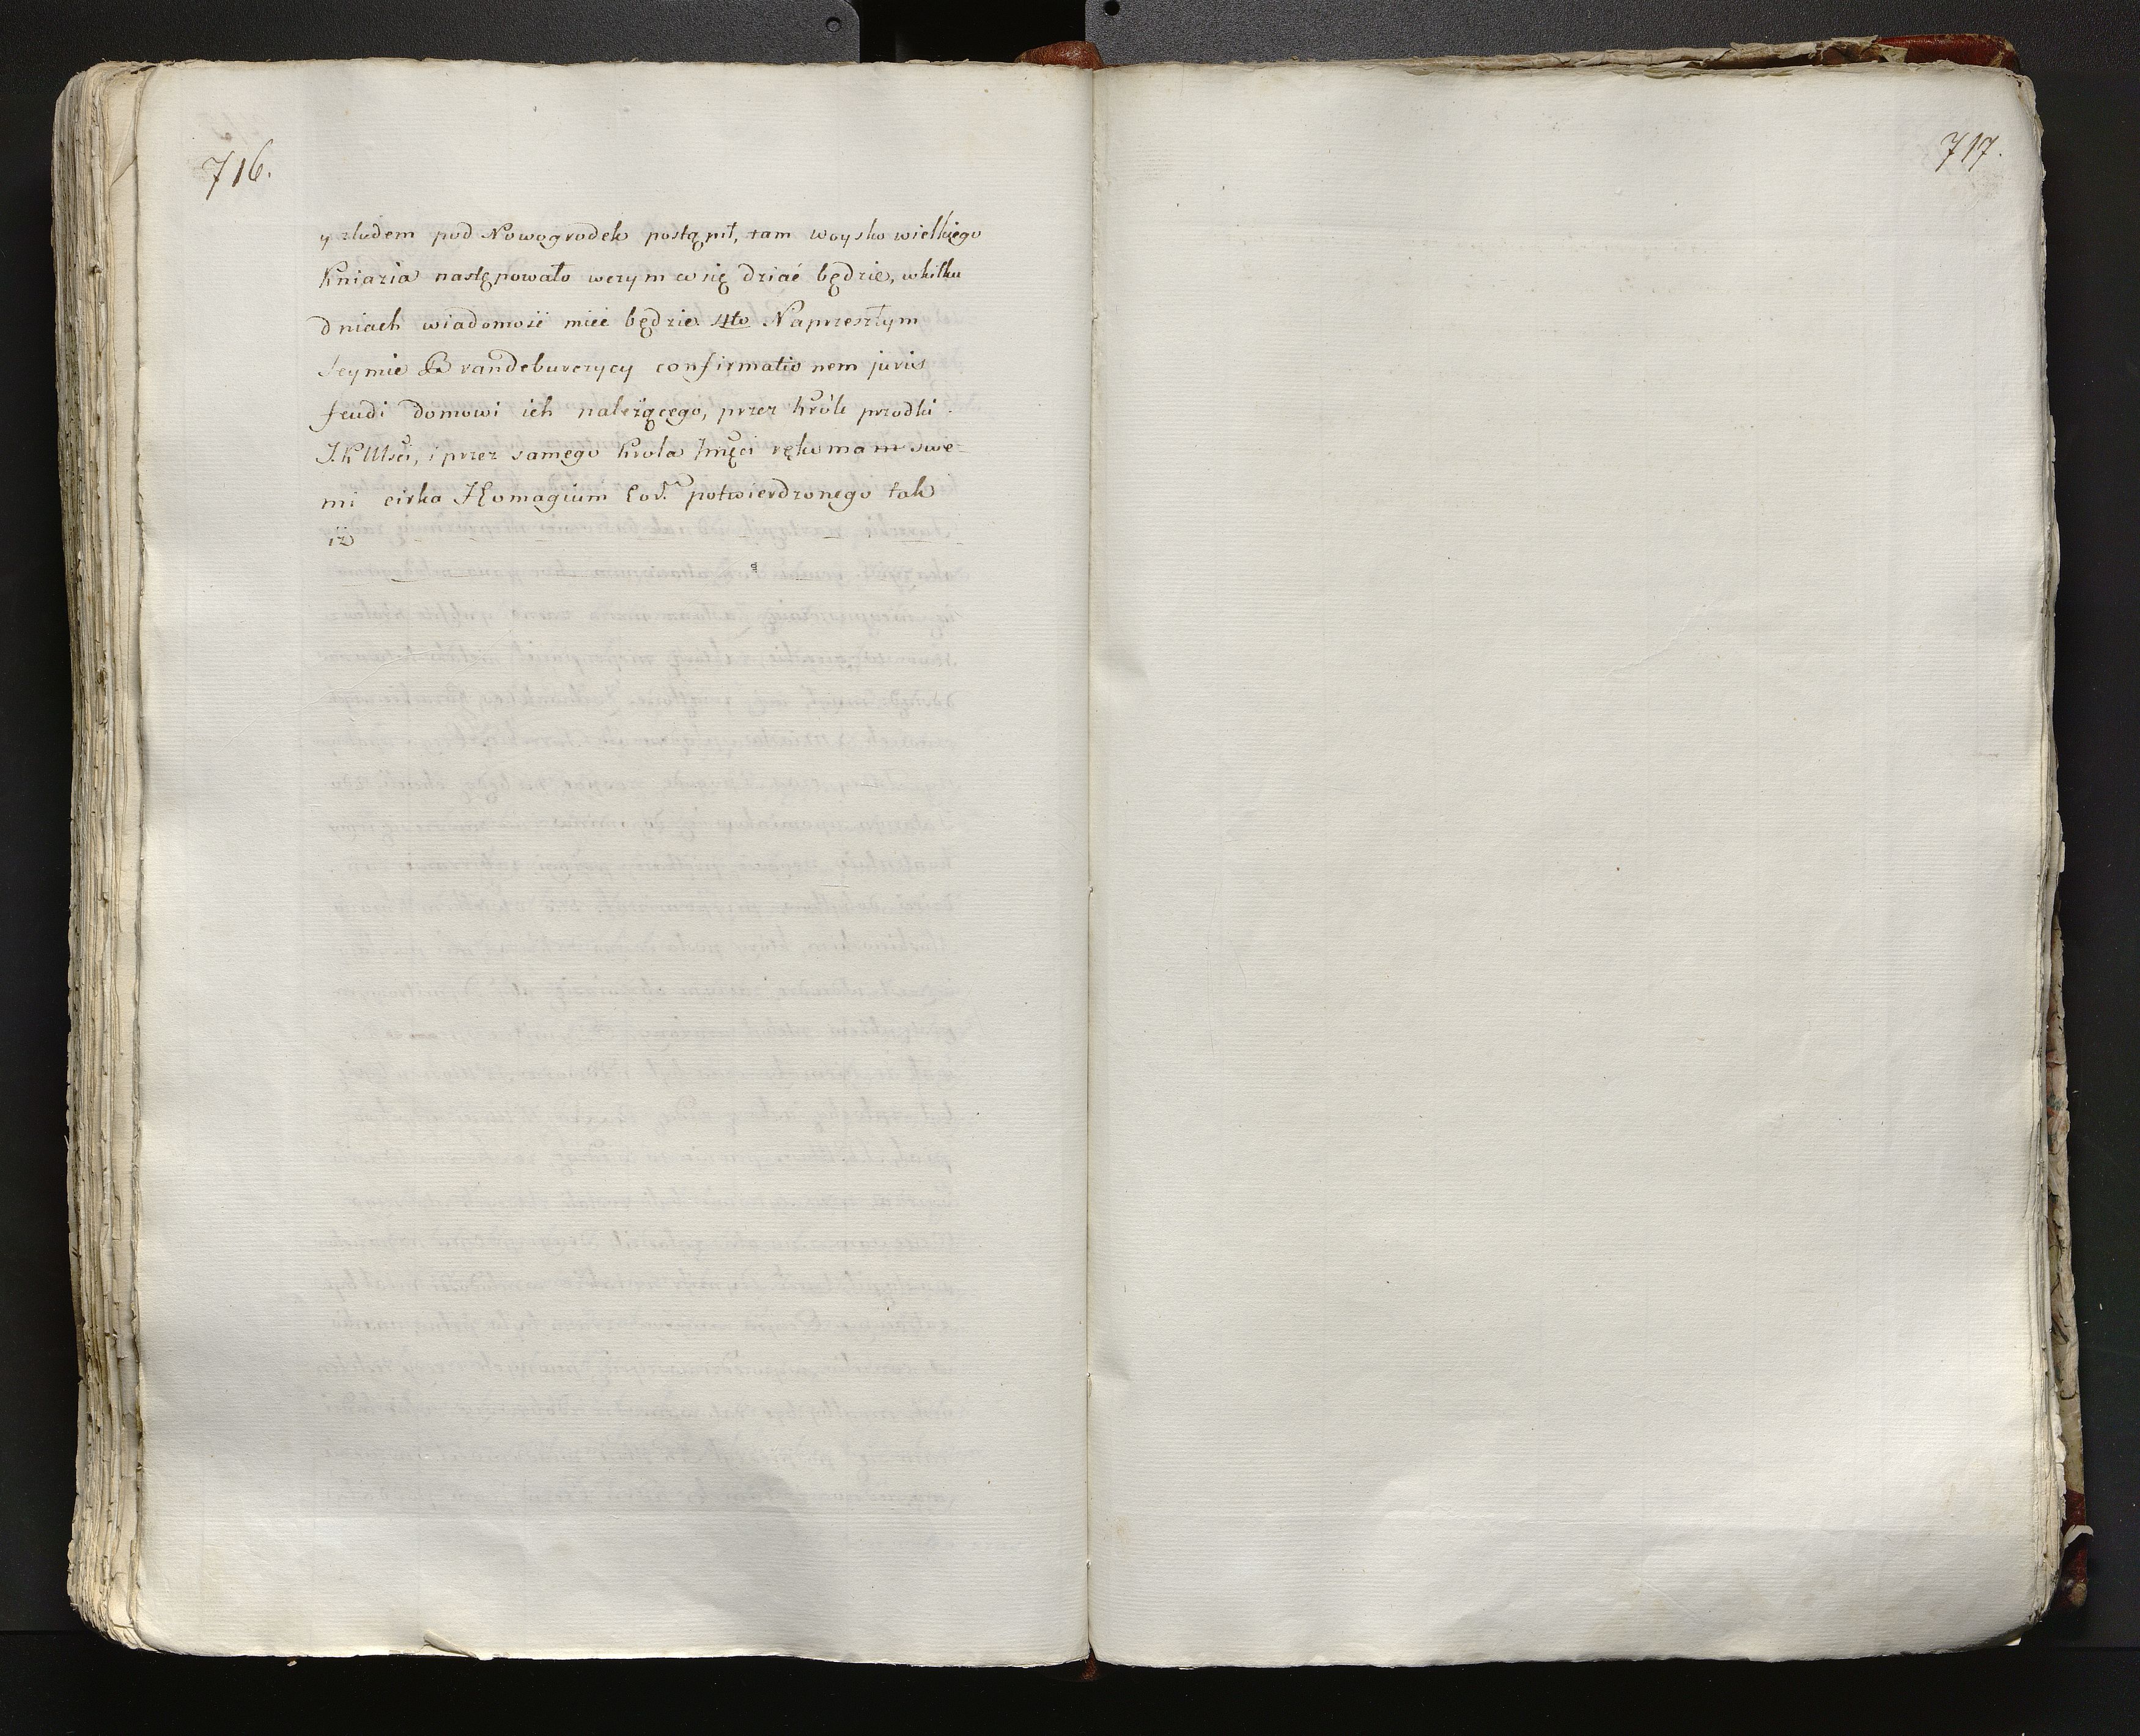 716.
y zludem pod Nowogrodek postąpił, tam woysko wielkiego
Kniazia następowało wczym co się dziać będzie, wkilku
dniach wiadomość mieć będzie 4to Naprzeszłym
Seymie Brandeburczycy confirmatio nem juris
feudi domowi ich należącego, przez Króle przodki
J.K Mści, i przez samego Krola Jmści rękoma swe-
mi cirka Homagium potwierdzonego tak
iż
717.